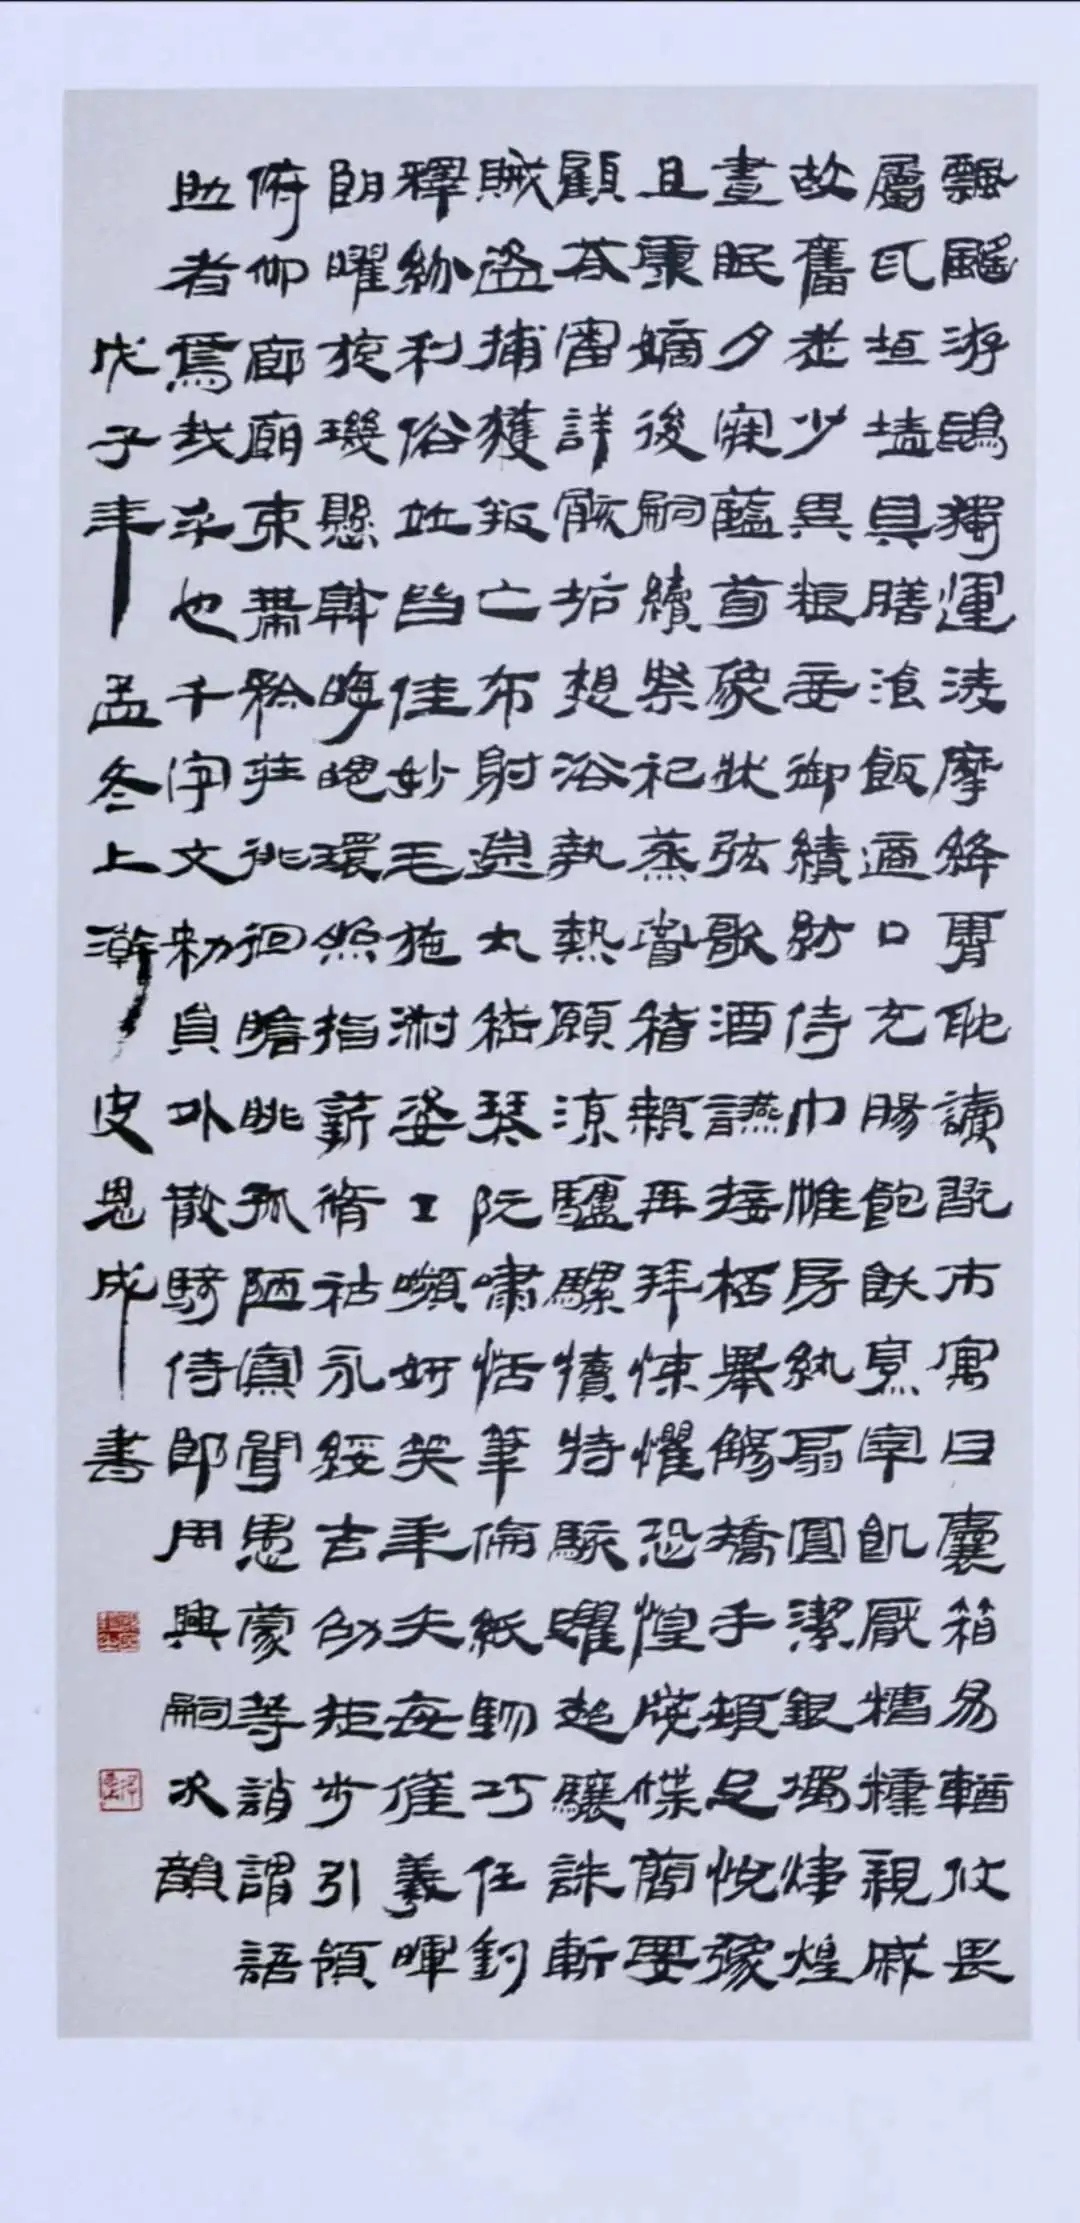 飄颻游鵾獨運凌摩絳霄耽讀翫市寓目囊箱易輶攸畏
屬耳垣墻具膳飡飯適口充腸飽飫烹宰飢厭糟糠親戚
故舊老少異糧妾御績紡侍巾帷房紈扇圓潔銀燭煒煌
晝眠夕寐藍荀象牀弦歌酒讌接桮舉觴矯手頓足悅豫
且康嫡後嗣續祭祀蒸嘗稽顙再拜悚懼恐惶牋牒簡要
顧荅審詳骸垢想浴執熱願涼驢騾犢特駭躍超驤誅斬
賊盜捕獲叛亡布射遼丸嵇琴阮嘯恬筆倫紙鈞巧任釣
釋紛利俗並皆佳妙毛施淑姿工嚬妍笑年矢每催羲暉
朗曜旋璣懸斡晦魄環照指薪脩祜永綏吉劭矩步引領
俯仰廊廟束帶矜莊徘徊瞻眺孤陋寡聞愚蒙等誚謂語
助者焉哉乎也千字文勑員外散騎侍郎用興嗣次韻
戊子年孟冬上澣皮恩成書